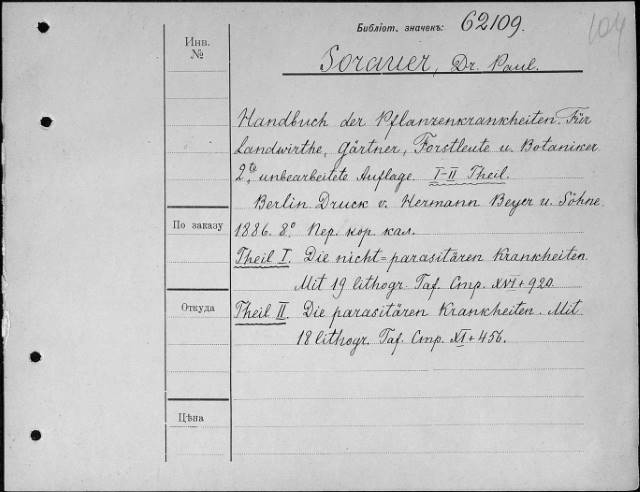 Библіот. значекъ: 62109.
104
Инв. №
Sorauer, Dr. Paul.
Handbuch der Pflanzenkrankheiten. Für
Landwirthe, Gärtner, Forstleute u. Botaniker.
2te unbearbeitete Auflage I-II Theil.
Berlin Druck v. Hermann Beyer u. Söhne
По заказу
1886. 8º Пер. кор. кал.
Theil I. Die nicht=parasitären Krankheiten.
Mit 19 lithogr. Taf. Стр. XVI+920.
Откуда
Theil II. Die parasitären Krankheiten. Mit
18 lithogr. Taf. Стр. XI+456.
Цѣна